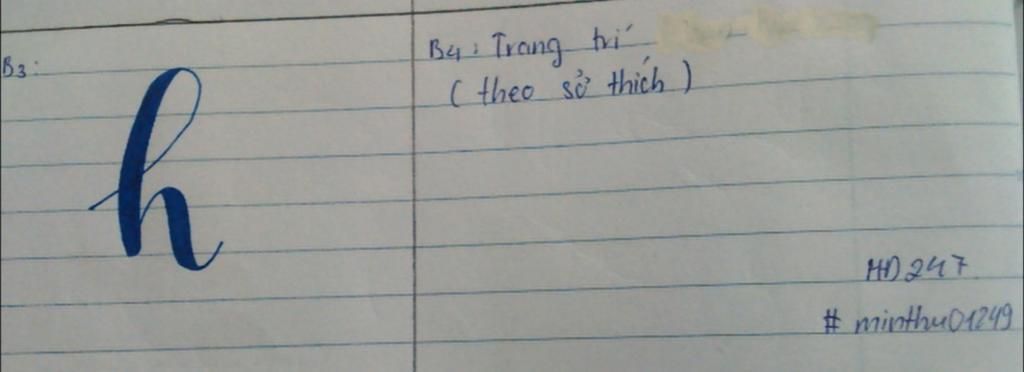 B3:
h
B4: Trang trí
(theo sở thích)
HD247
# minthu01249